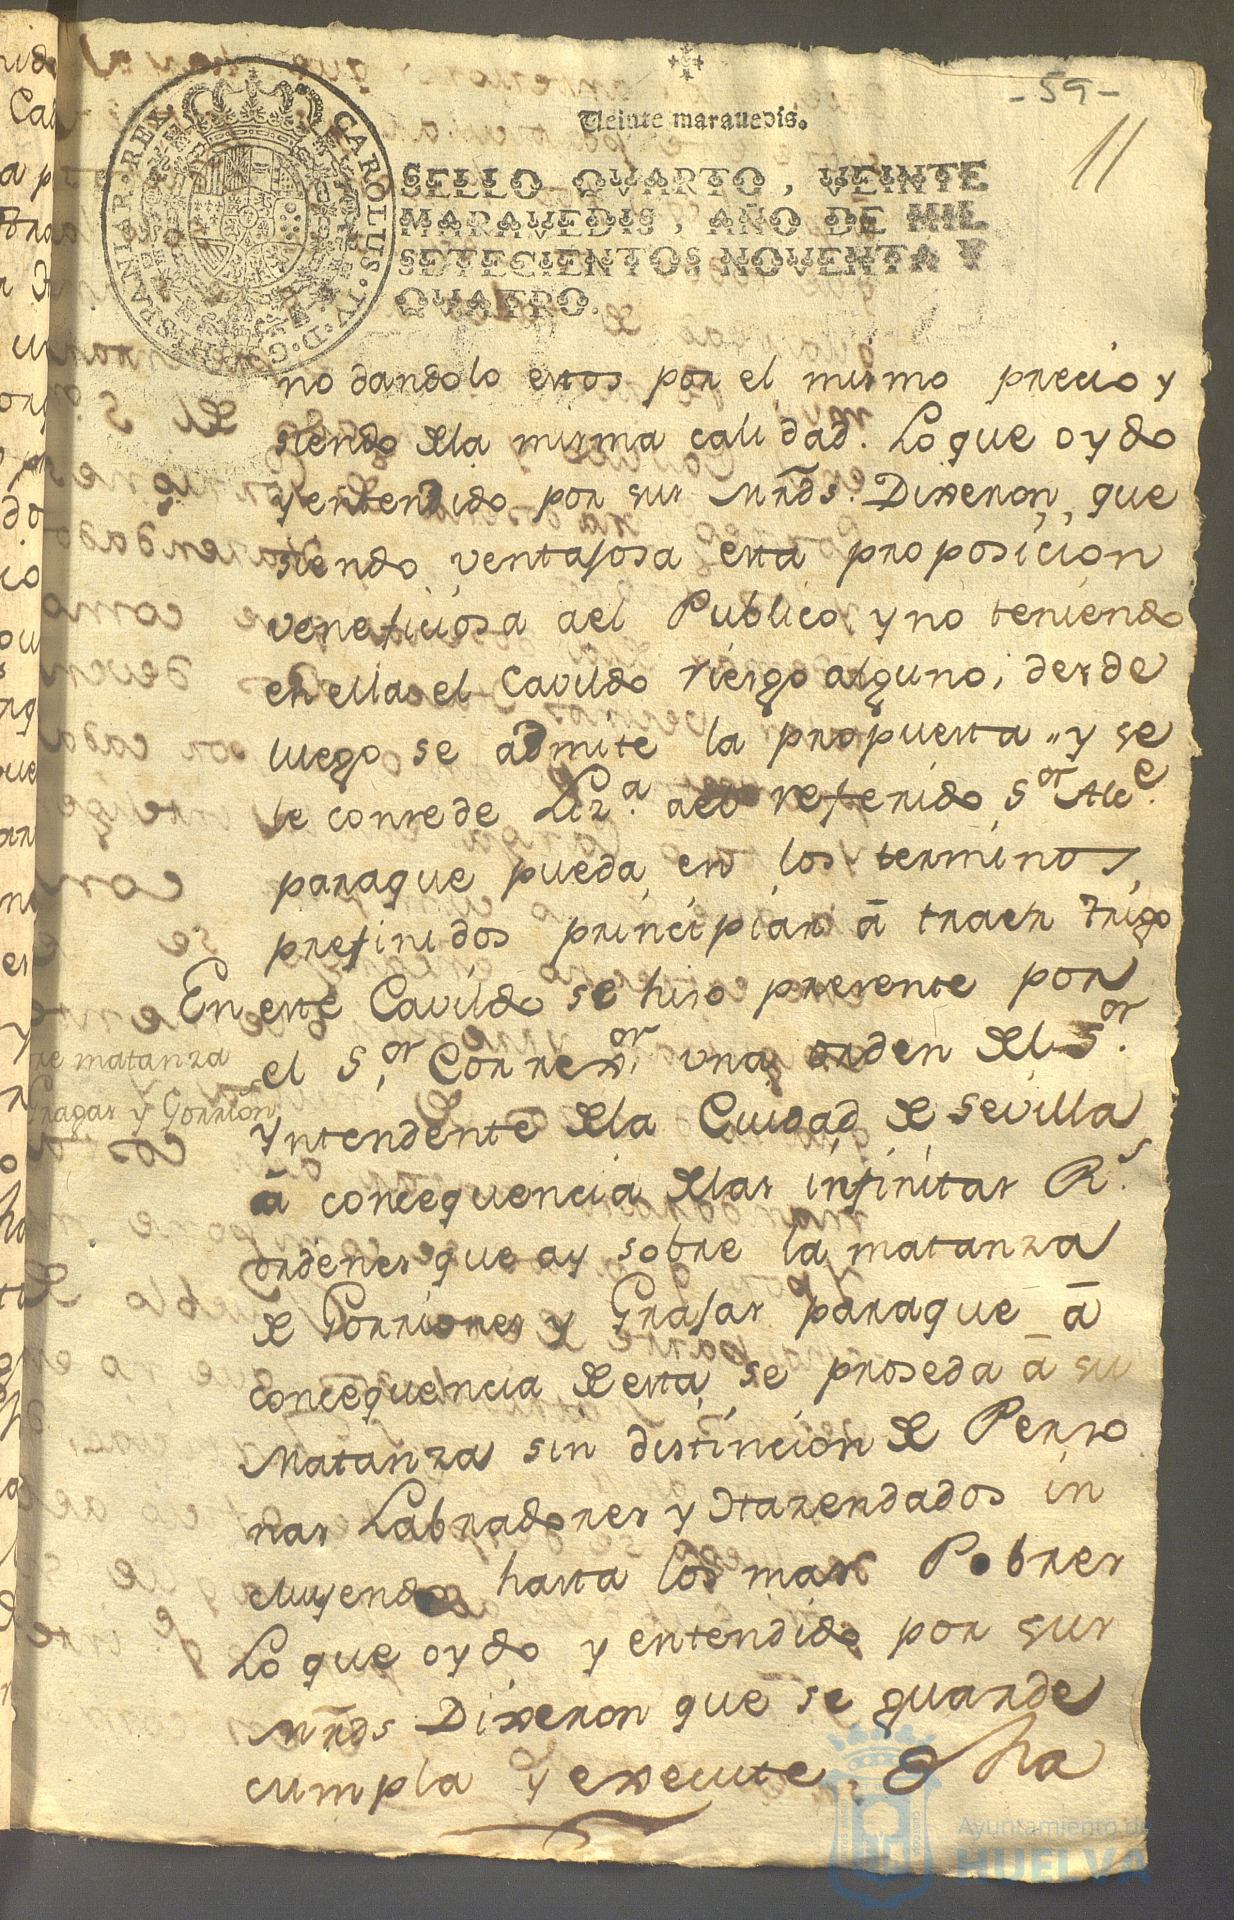 - 59 -
11
Veinte marauedis.
CAROLUS · IV · D · G · HISPANIAR · REX ·
SELLO QVARTO, VEINTE
MARAVEDIS, AÑO DE MIL
SETECIENTOS NOVENTA Y
QVATRO.
no dandolo estos por el mismo precio y
siendo dela misma calidad. Lo que oydo
y entendido por sus Mrds. Dixeron, que
siendo ventajosa esta proposicion
veneficiosa ael Publico, y no teniendo
en ella el Cavildo riesgo alguno, desde
luego se admite la propuesta „ y se
le consede Liz.a ael referido S.or Alc.e
paraque pueda en los terminos
prefinidos principiar ā traer Trigo
En este Cavildo se hiso presente por
el S.or Correx.or una orden del S.or
de matanza
Yntendente dela Ciudad de Sevilla
Pragas y Gorrion
ā concequencia delas infinitas R.s
ordenes que ay sobre la matanza
de Gorriones y Grajas paraque ā
concequencia de esta se proseda ā su
Matanza sin distincion de Perso
nas Labradores y Hazendados in
cluyendo hasta los mas Pobres
Lo que oydo y entendido por sus
Mrds. Dixeron que se guarde
cumpla y execute.
Ayuntamiento de
HUELVA